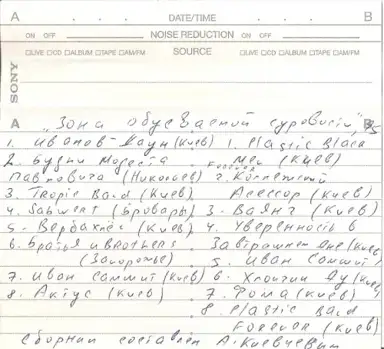 A DATE/TIME B
ON OFF NOISE REDUCTION ON OFF
□LIVE □CD □ALBUM □TAPE □AM/FM SOURCE □LIVE □CD □ALBUM □TAPE □AM/FM
SONY
A B
"Зона обусваемой суровости"
1. Иванов-Даун (Киев) 1. Plastic Black
2. Будни Модеста Men (Киев)
Павловича (Николаев) 2. Коллежский
3. Tropic Band (Киев) Асессор (Киев)
4. Sabwert (Бровары) 3. Ваянг (Киев)
5. Вербахнес (Киев) 4. Уверенность в
6. Братья и Brothers Завтрашнем Дне (Киев)
(Запорожье) 5. Иван Саммит
7. Иван Саммит (Киев) 6. Хлопчик Ау (Киев)
8. Актус (Киев) 7. Фома (Киев)
8. Plastic Band
Forever (Киев)
Сборник составлен А. Киевчевим